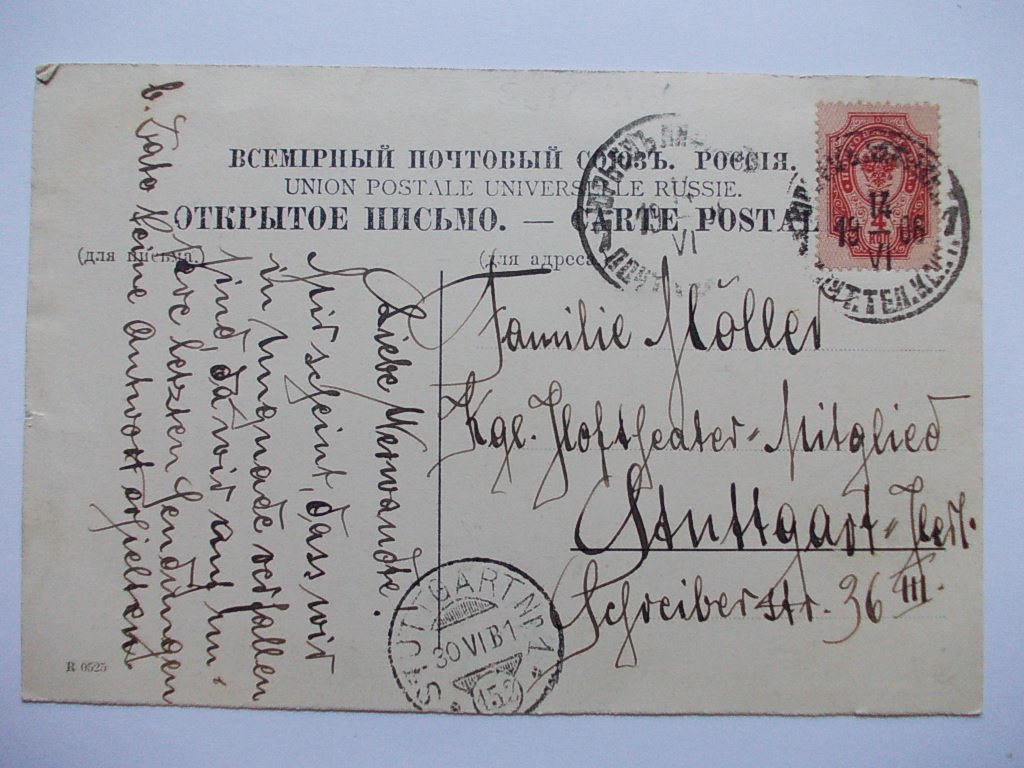 ВСЕМІРНЫЙ ПОЧТОВЫЙ СОЮЗЪ. РОССІЯ.
UNION POSTALE UNIVERSELLE RUSSIE.
ОТКРЫТОЕ ПИСЬМО. — CARTE POSTAL
(для письма.)
(для адреса
Familie Möller
Kgl. Hoftheater-Mitglied
Stuttgart-Hesl.
Schreiberstr. 36 III.
Liebe Verwandte.
Mir scheint, dass wir
in Ungnade verfallen
sind, da wir auf un-
sere letzten Sendungen
b. Dato keine Antwort erhielten
19 VI
17
19 06
VI
STUTTGART NR. 1
30 VI B 1
R 0525